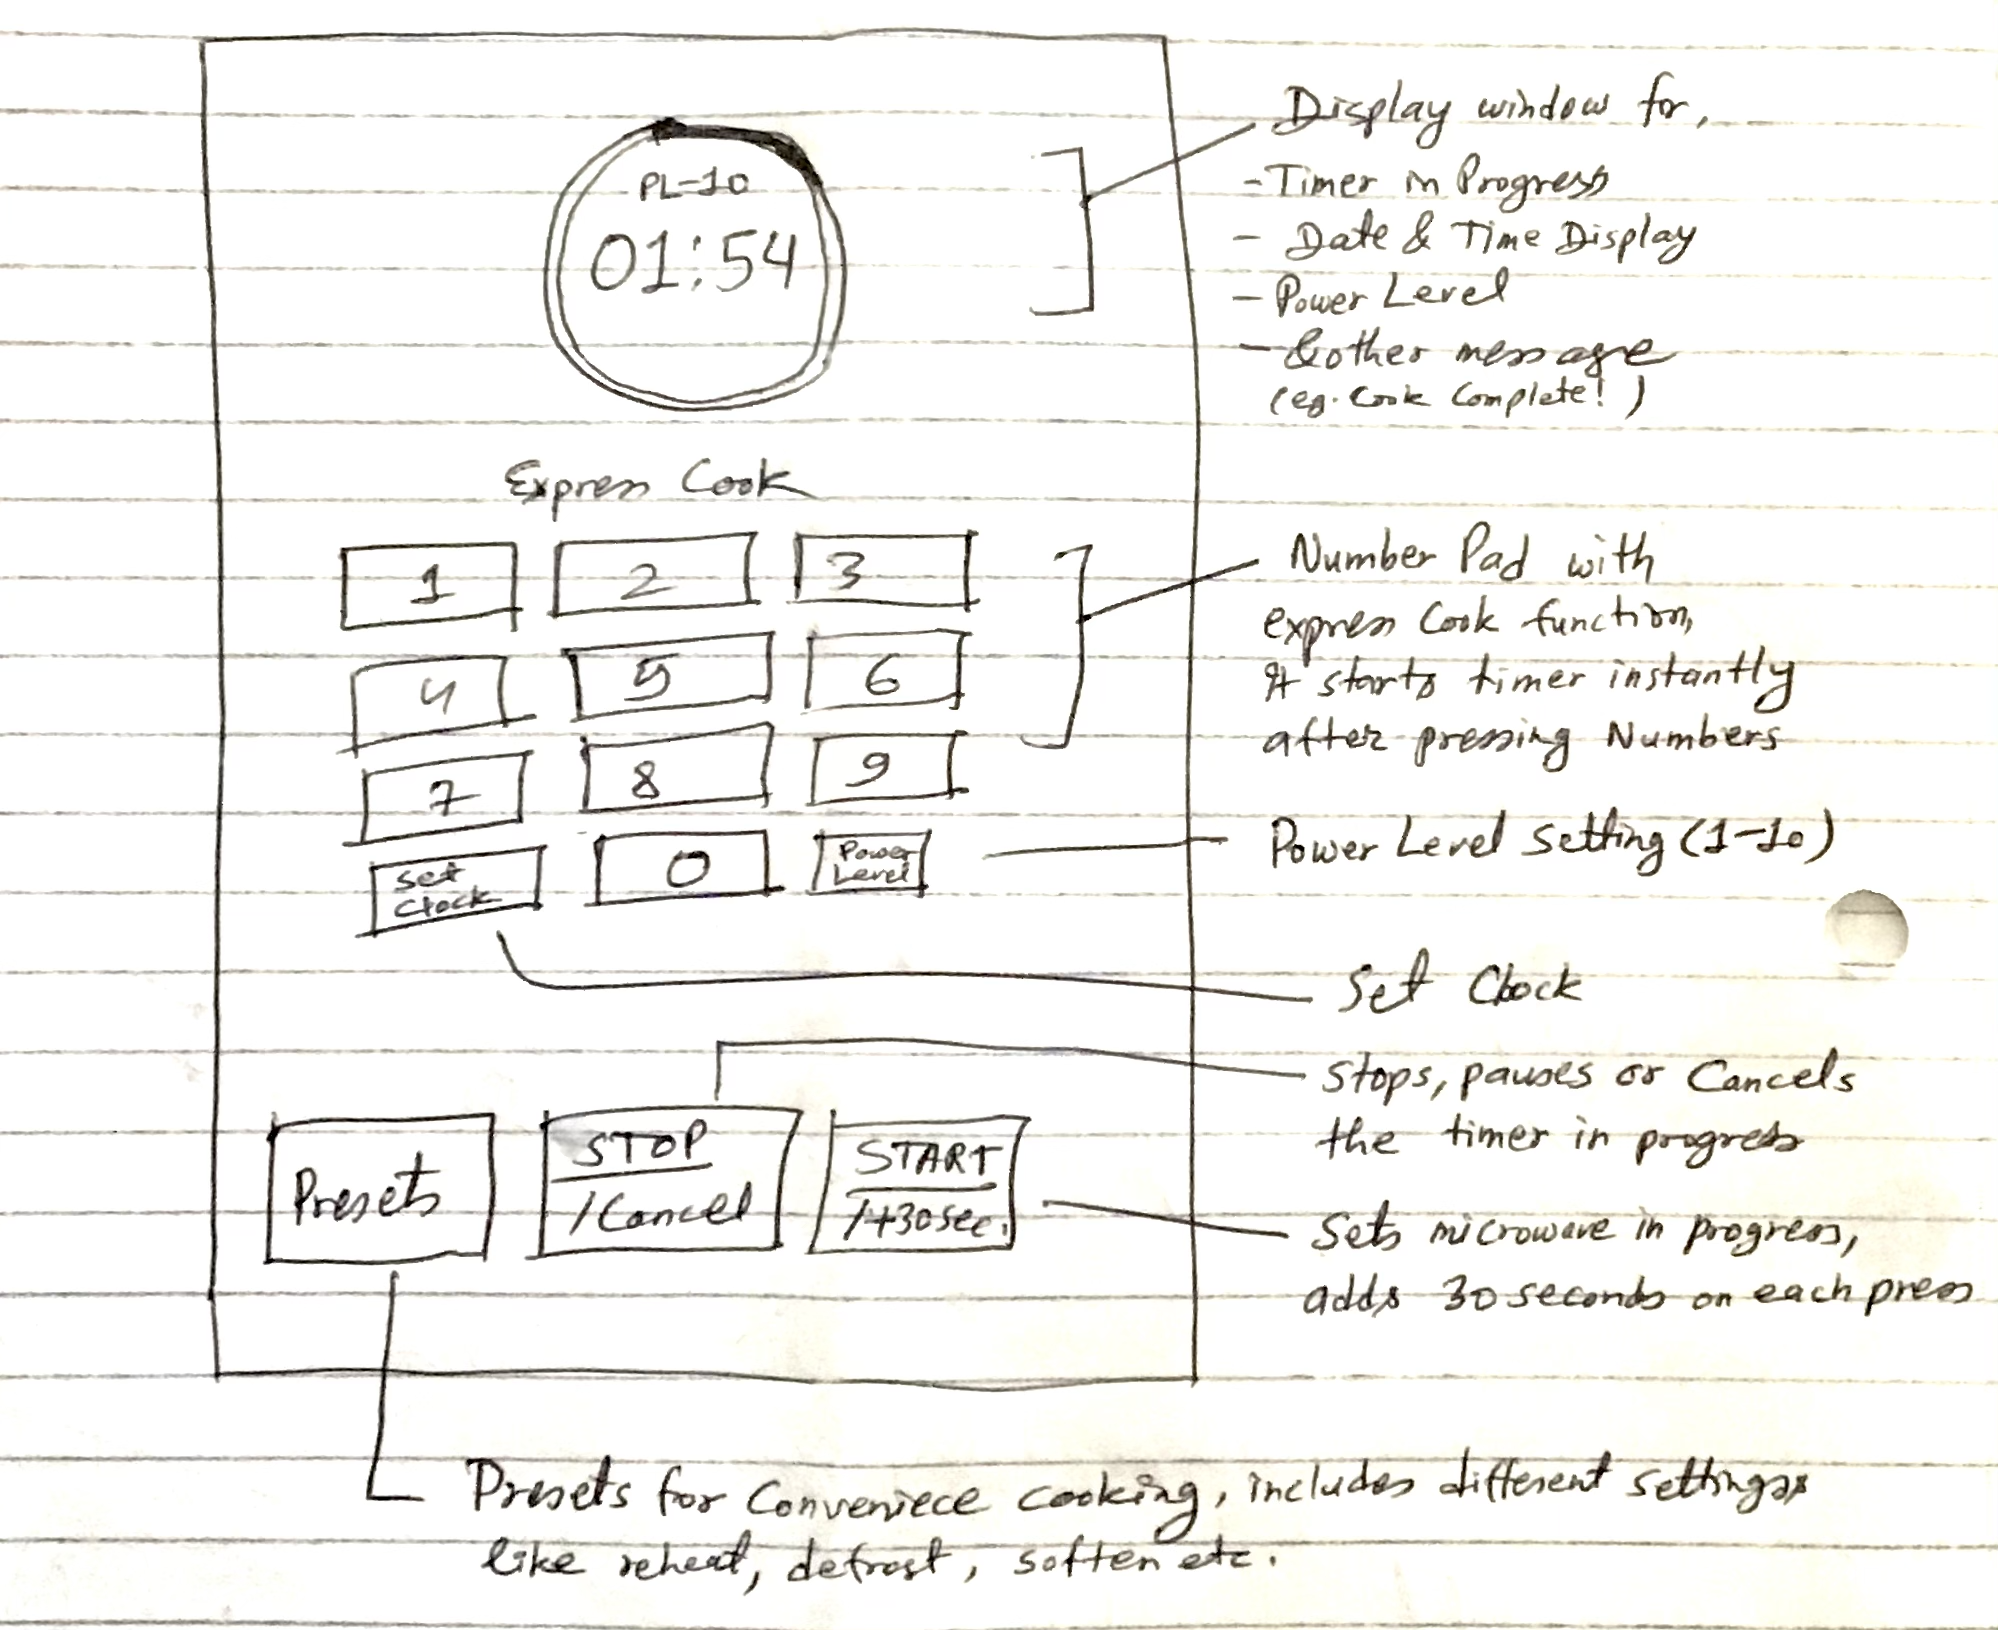 PL-10
01:54
Display window for,
- Timer in Progress
- Date & Time Display
- Power Level
- & other message
(eg. Cook Complete! )
Express Cook
1 2 3
4 5 6
7 8 9
Set Clock 0 Power Level
Number Pad with
express Cook function,
It starts timer instantly
after pressing Numbers
Power Level Setting (1-10)
Set Clock
Stops, pauses or Cancels
the timer in progress
Presets
STOP
/Cancel
START
/+30sec.
Sets microwave in progress,
adds 30 seconds on each press
Presets for Conveniece cooking, includes different settings
like reheat, defrost, soften etc.